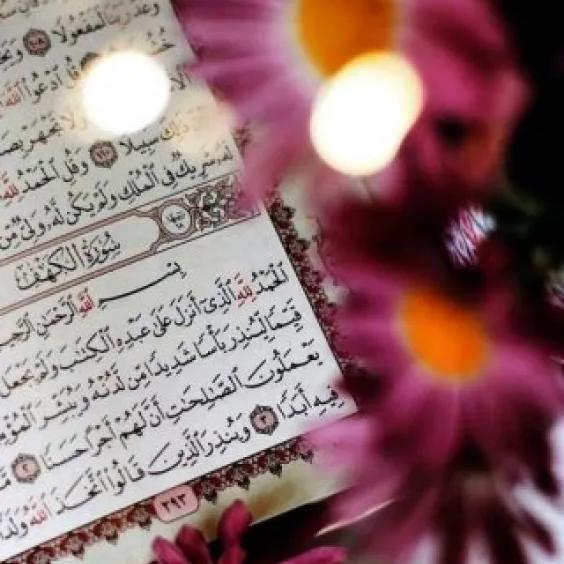 وَعْدُ رَبِّنَا لَمَفْعُولًا ١٠٨
قُلِ ادْعُوا اللَّهَ
وَلَا تَجْهَرْ بِصَ
ذَٰلِكَ سَبِيلًا ١١٠ وَقُلِ الْحَمْدُ لِلَّهِ
لَّهُ شَرِيكٌ فِي الْمُلْكِ وَلَمْ يَكُن لَّهُ وَلِيٌّ مِّنَ
سُورَةُ الْكَهْفِ
بِسْمِ اللَّهِ الرَّحْمَٰنِ الرَّحِي
الْحَمْدُ لِلَّهِ الَّذِي أَنزَلَ عَلَىٰ عَبْدِهِ الْكِتَٰبَ وَلَمْ يَجْعَل
قَيِّمًا لِّيُنذِرَ بَأْسًا شَدِيدًا مِّن لَّدُنْهُ وَيُبَشِّرَ الْمُؤْمِ
يَعْمَلُونَ الصَّٰلِحَٰتِ أَنَّ لَهُمْ أَجْرًا حَسَنًا ٢
فِيهِ أَبَدًا ٣ وَيُنذِرَ الَّذِينَ قَالُوا اتَّخَذَ اللَّهُ وَلَدًا
٢٩٣